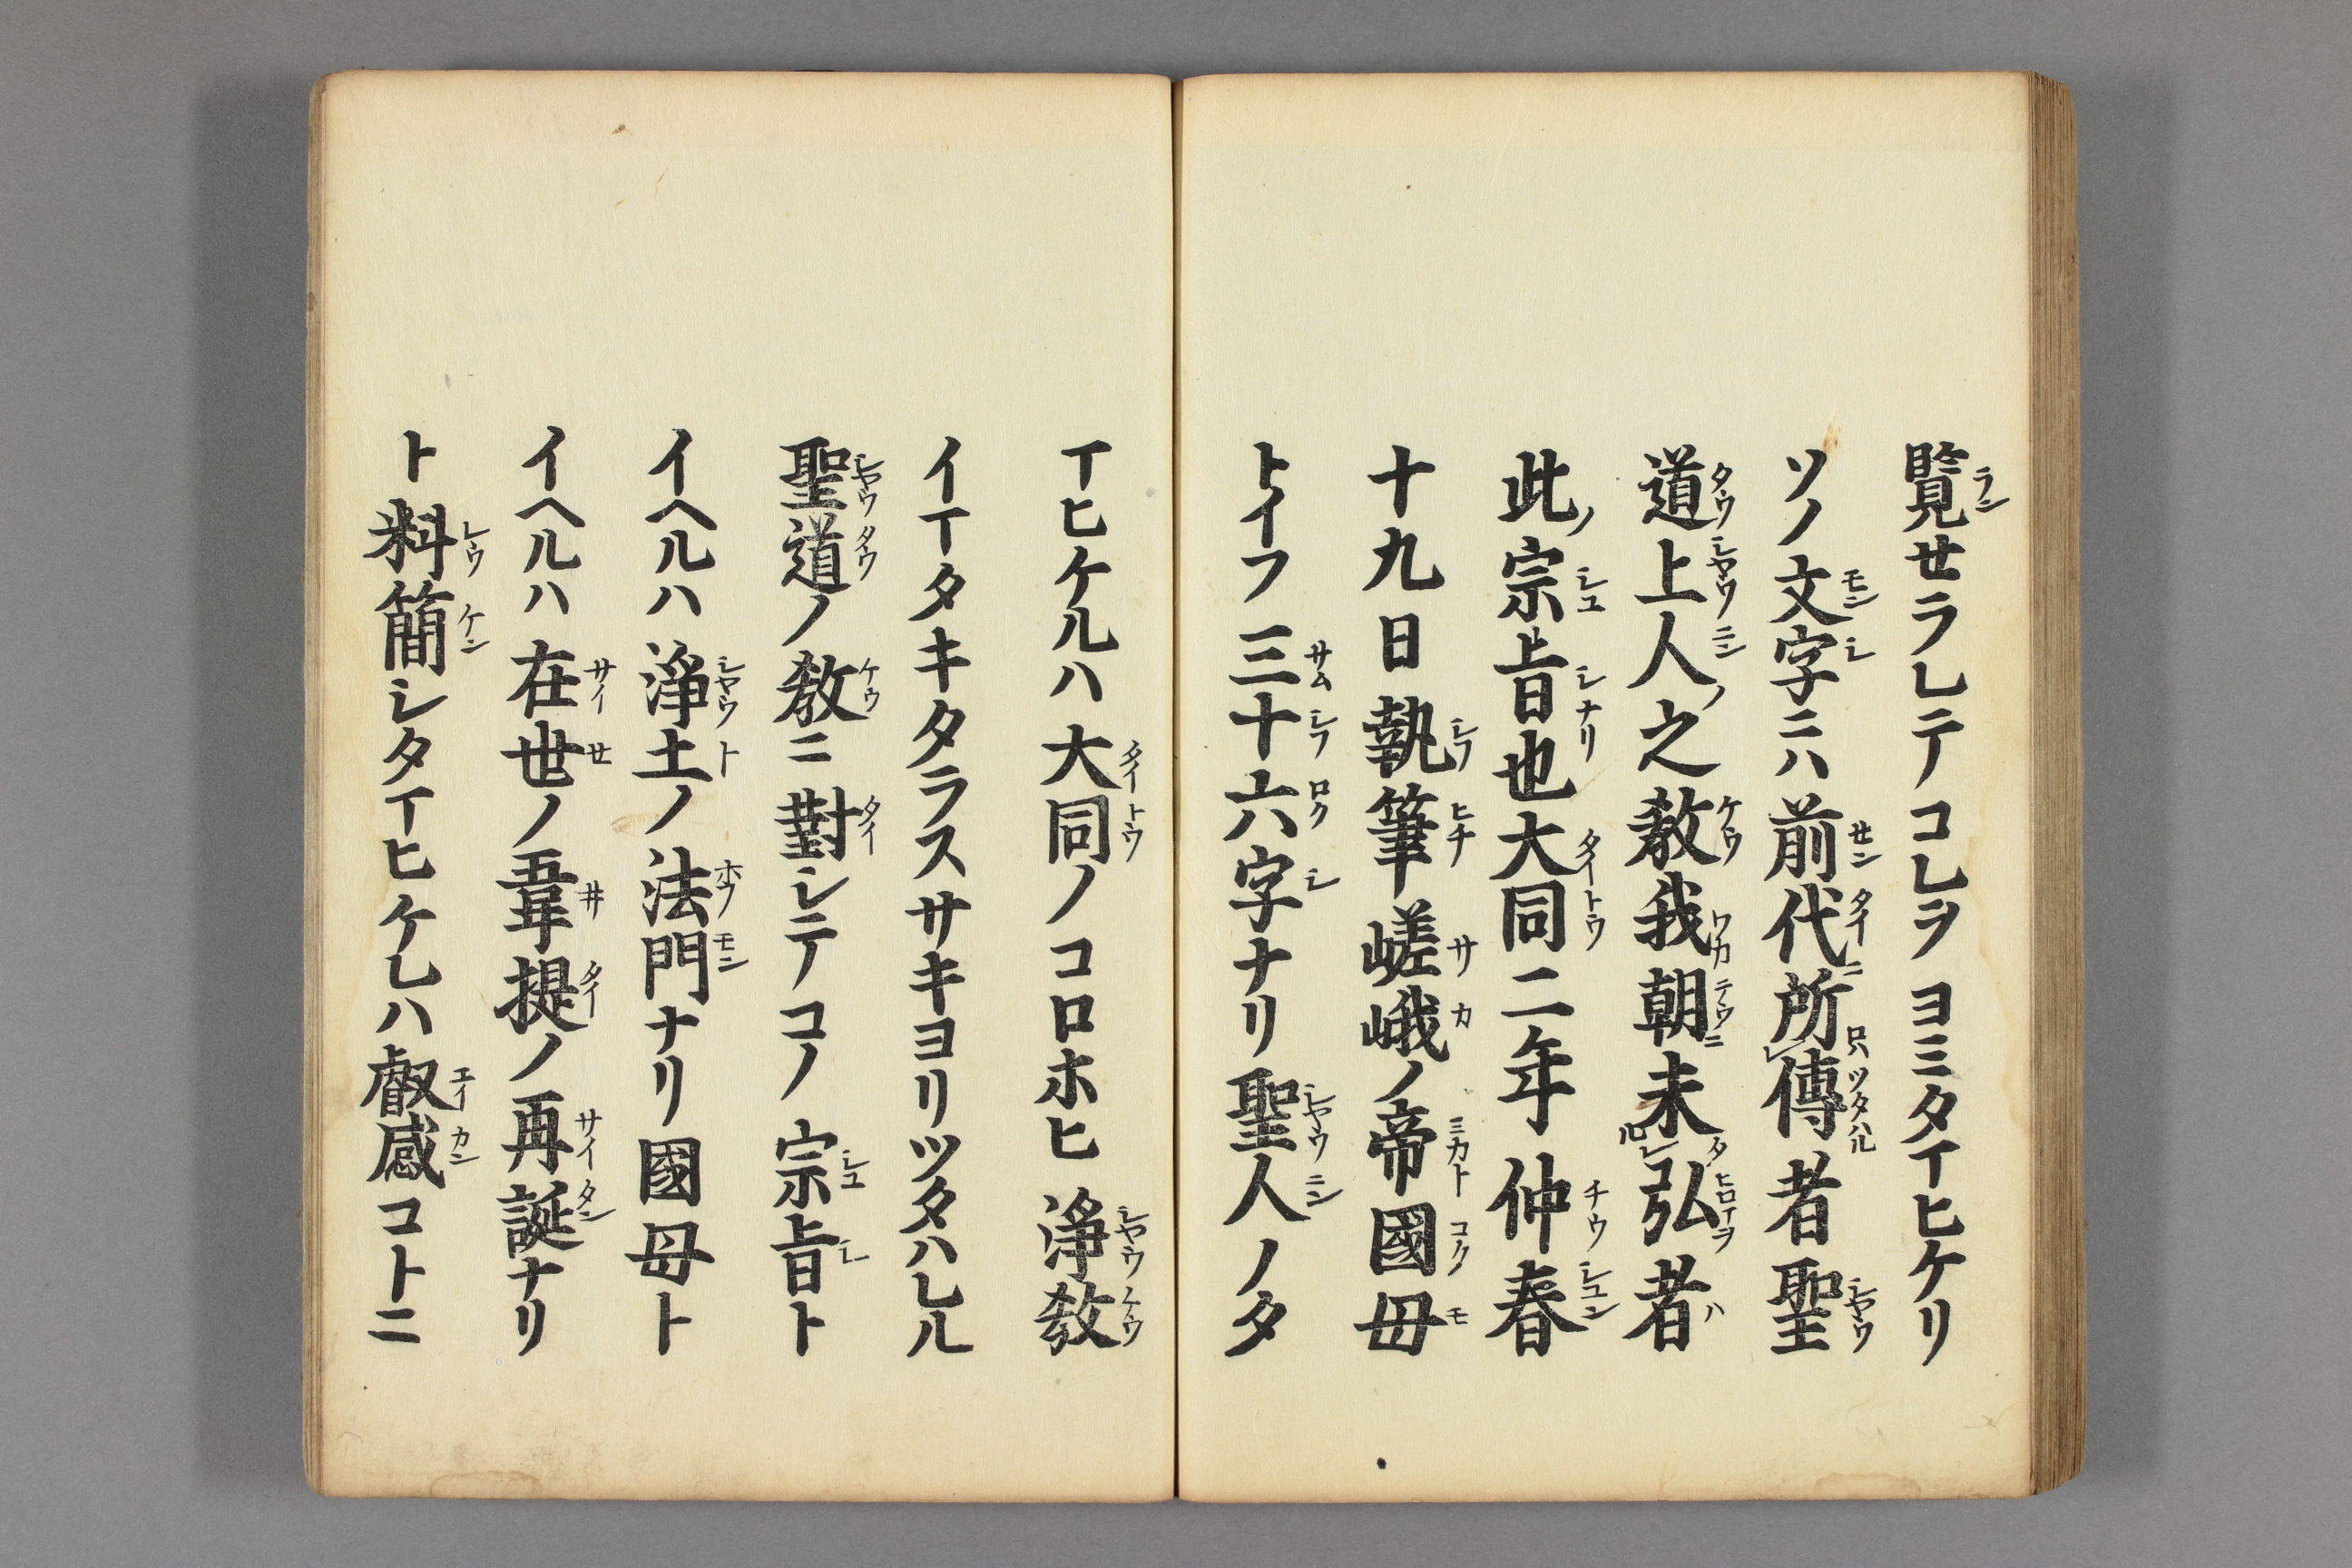 覧セラレテコレヲヨミタイヒケリ
ソノ文字ニハ前代所傳者聖
道上人之教我朝未弘者
此宗旨也大同二年仲春
十九日執筆嵯峨ノ帝國母
トイフ三十六字ナリ聖人ノタ
イヒケルハ大同ノコロホヒ浄教
イイタキタラスサキヨリツタハレル
聖道ノ教ニ對シテコノ宗旨ト
イヘルハ浄土ノ法門ナリ國母ト
イヘルハ在世ノ韋提ノ再誕ナリ
ト料簡シタイヒケレハ叡感コトニ